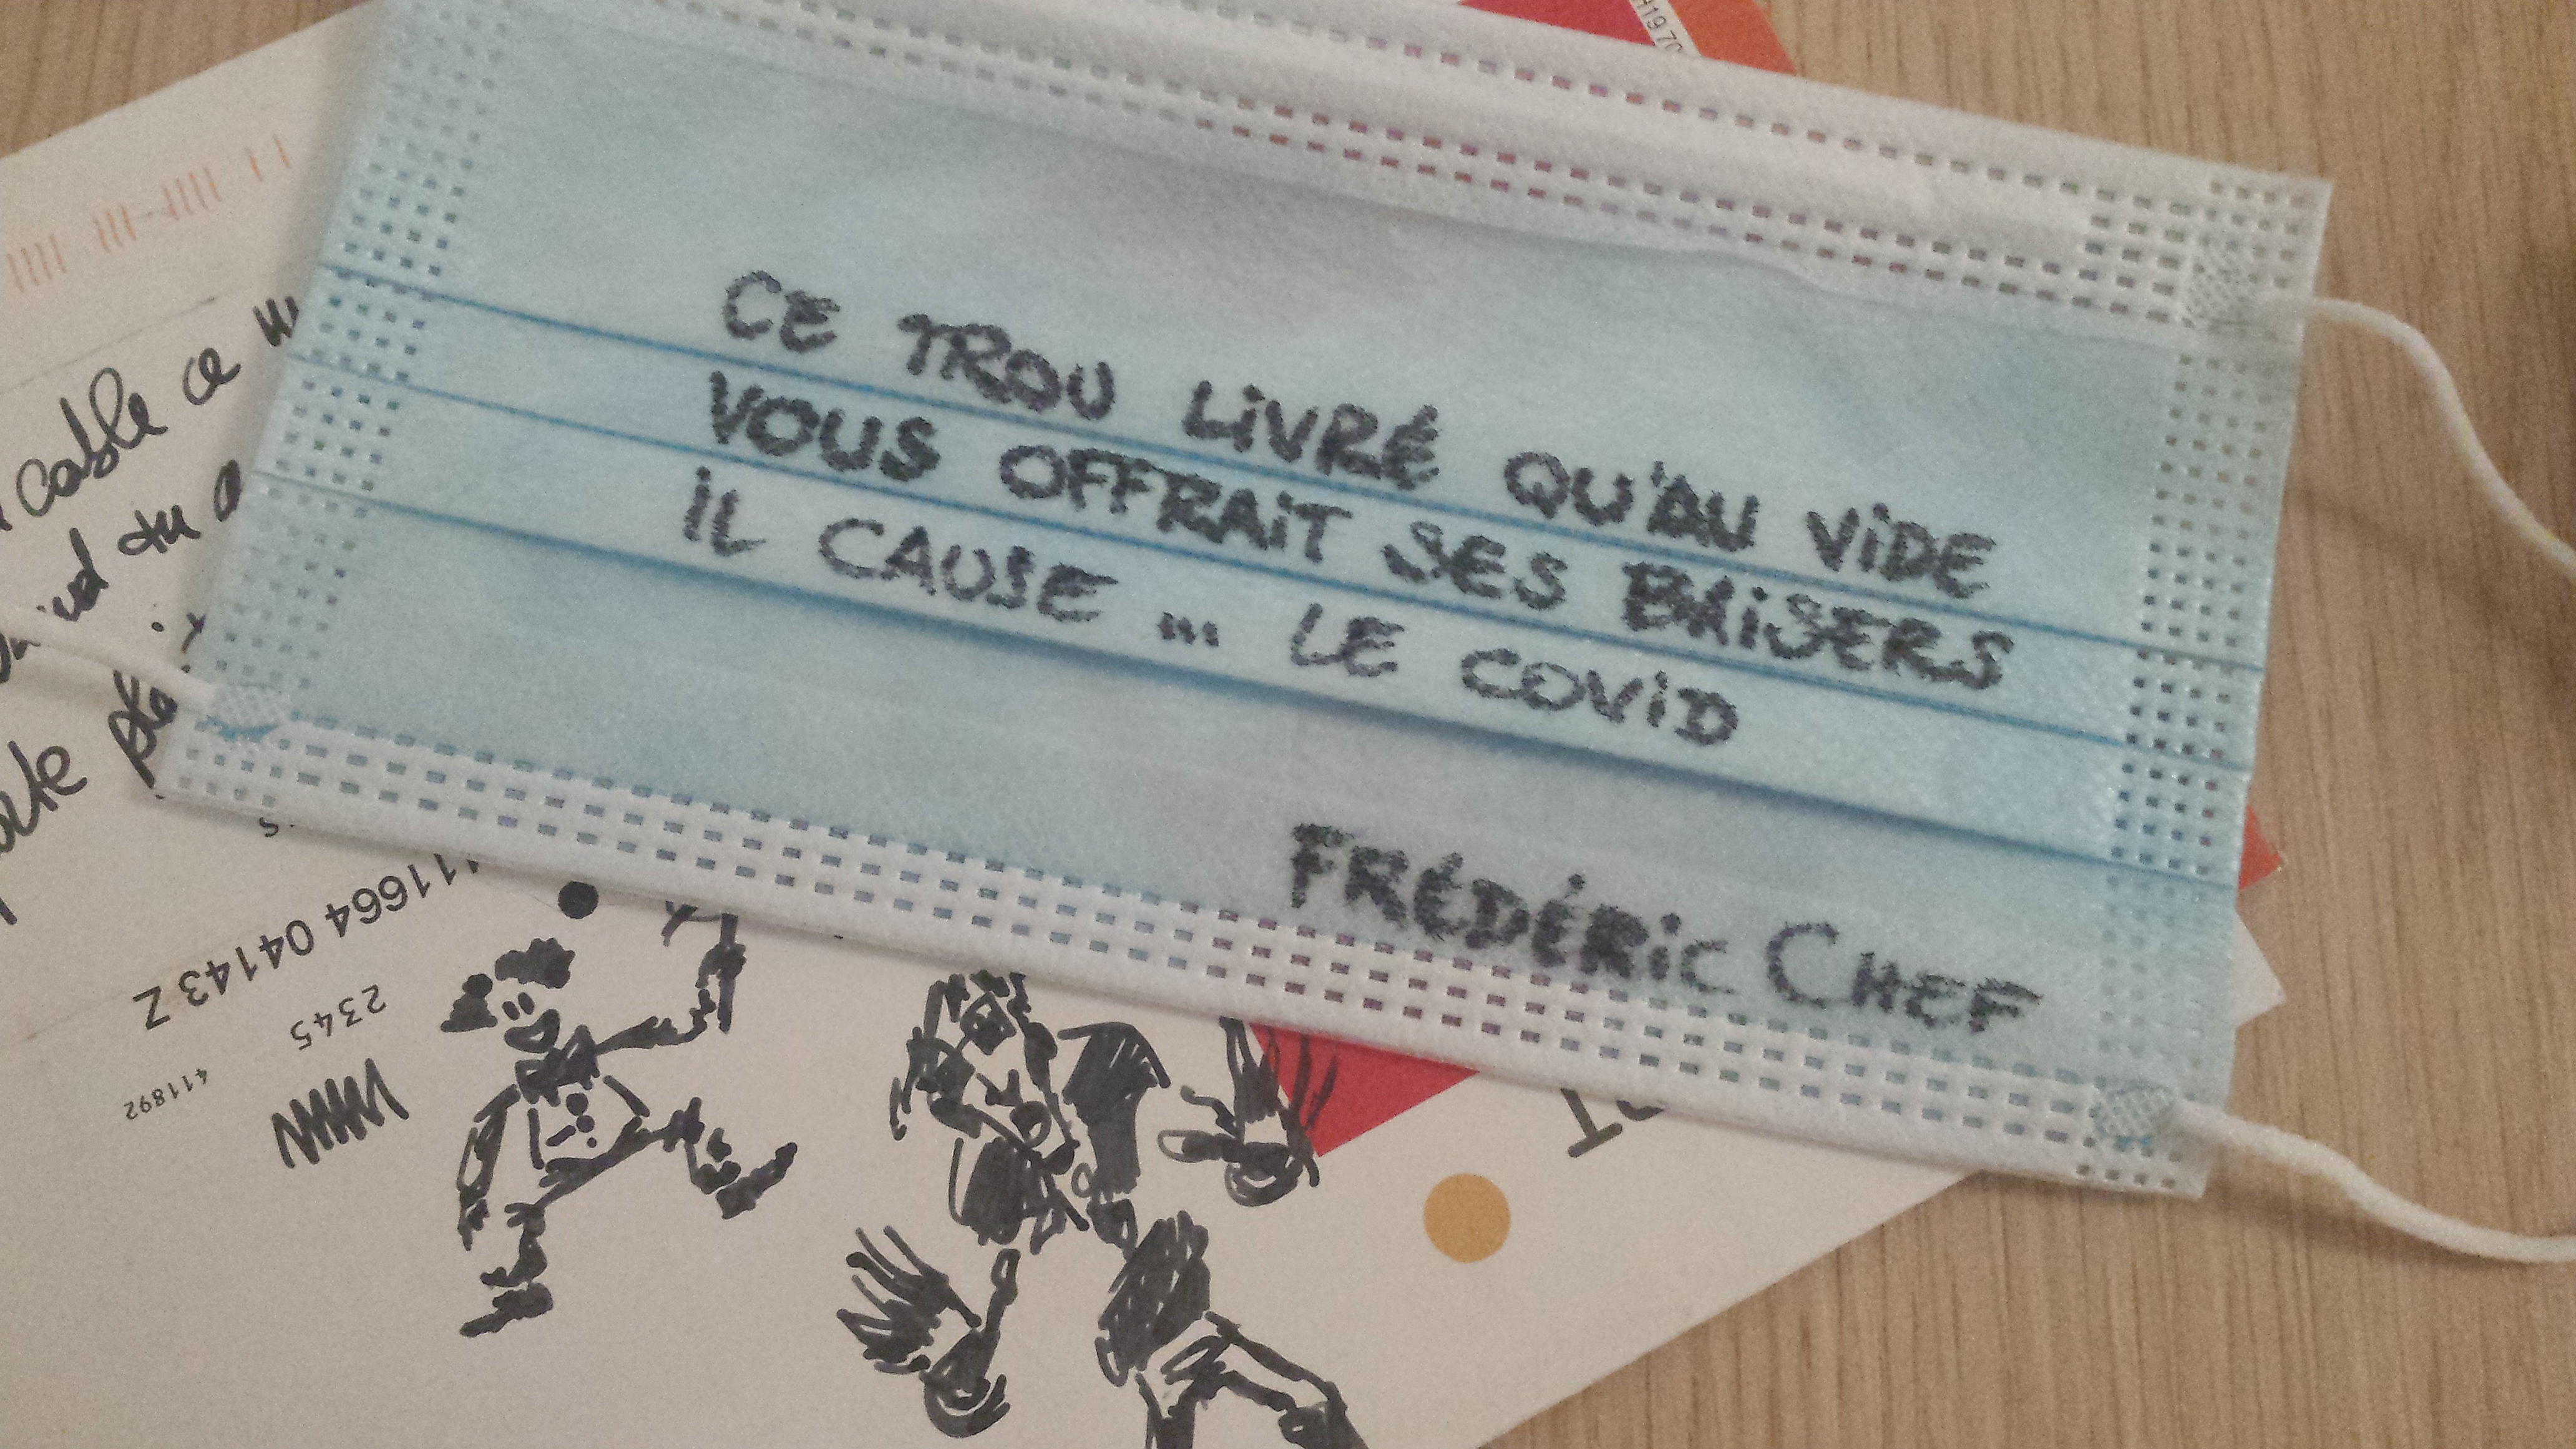 CE TROU LiVRÉ QU'AU ViDE
VOUS OFFRAiT SES BAiSERS
iL CAUSE ... LE COViD
FRÉDÉRiC CHEF
cable ce
tu
111664 04143Z
2345
411892